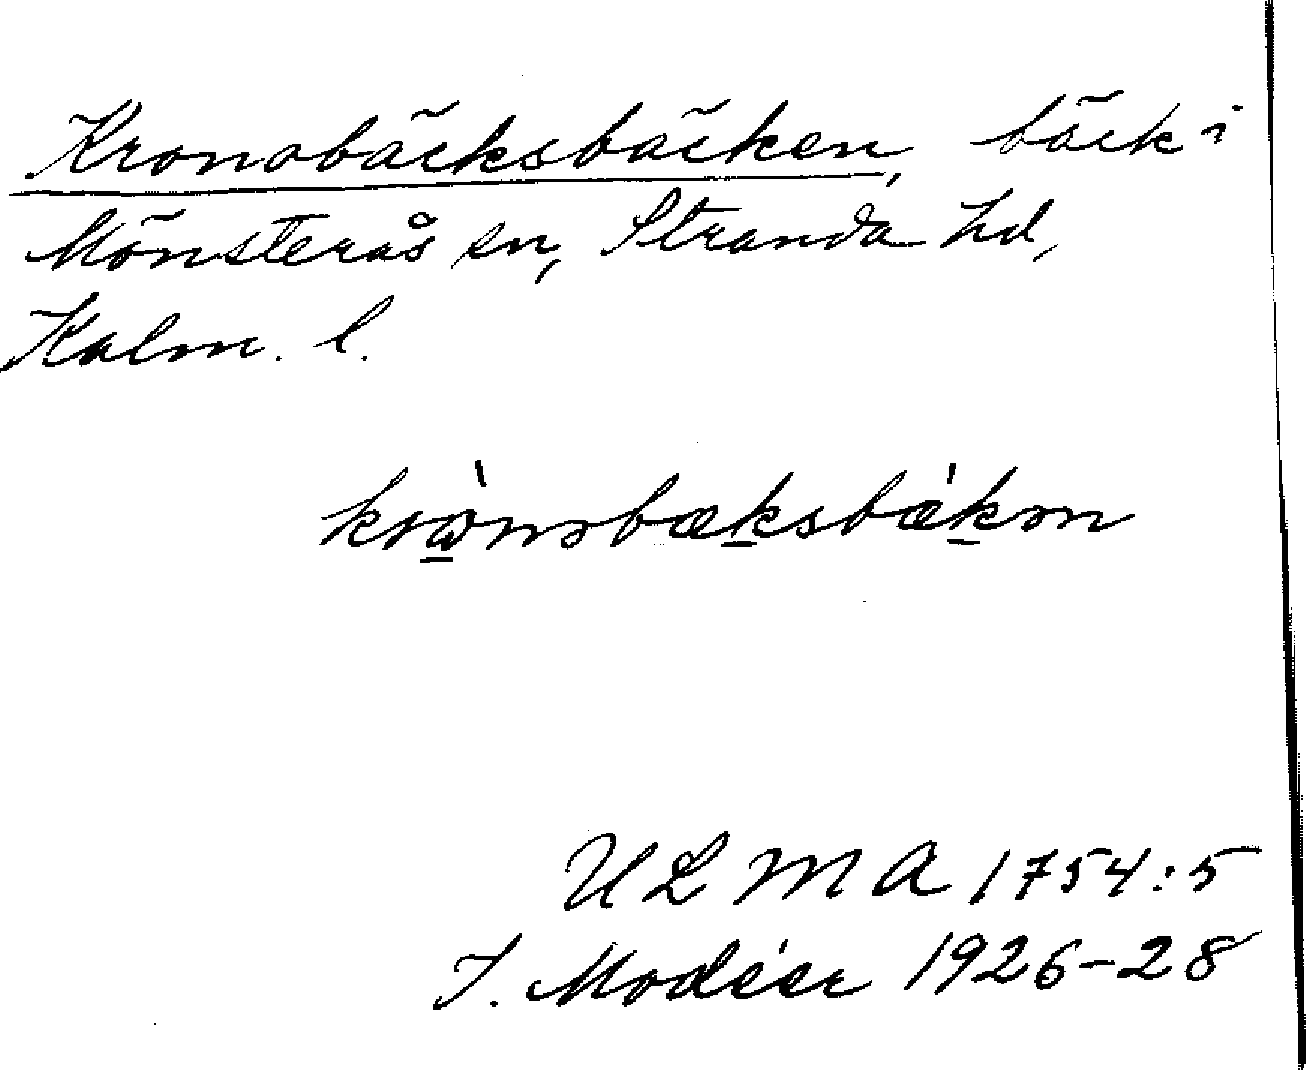 Kronobäcksbäcken, bäck i
Mönsterås sn, Stranda hd,
Kalm. l.
ULMA 1754:5
I. Modéer 1926-28